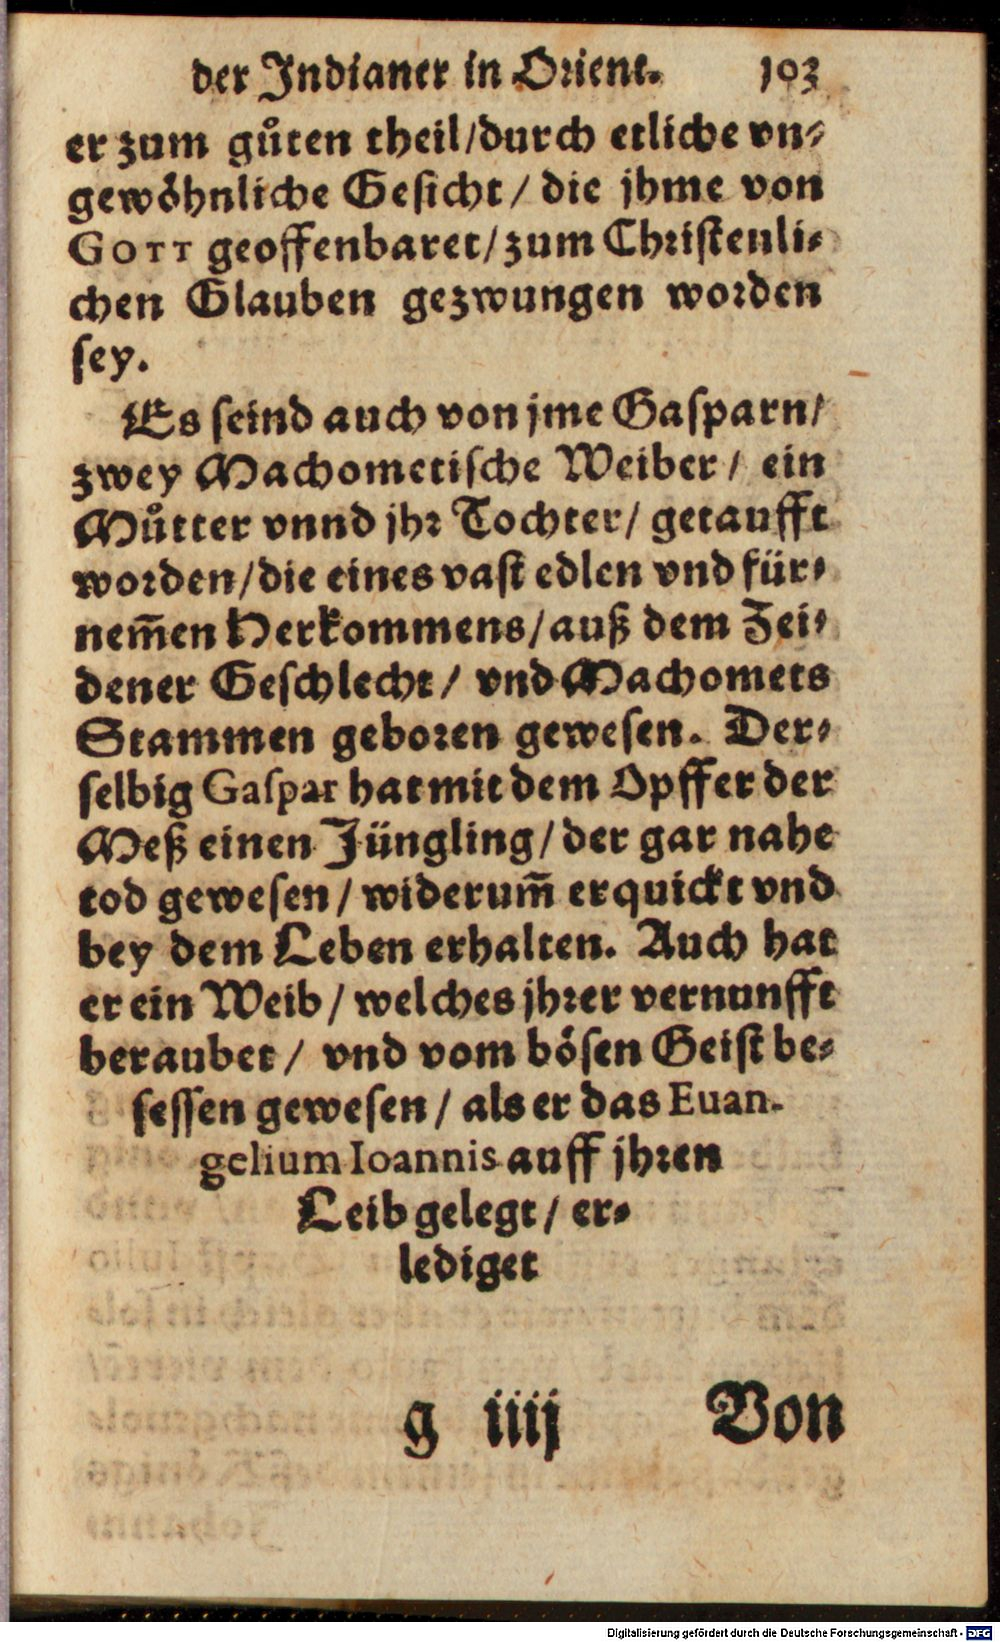 der Indianer in Orient. 103
er zum guͤten theil/durch etliche vn⸗
gewoͤhnliche Gesicht/ die jhme von
GOTT geoffenbaret/zum Christenli⸗
chen Glauben gezwungen worden
sey.
Es seind auch von jme Gasparn/
zwey Machometische Weiber/ ein
Muͦtter vnnd jhr Tochter/ getaufft
worden/die eines vast edlen vnd für⸗
nem̃en Herkommens/auß dem Zei⸗
dener Geschlecht/ vnd Machomets
Stammen geboren gewesen. Der⸗
selbig Gaspar hat mit dem Opffer der
Meß einen Jüngling/der gar nahe
tod gewesen/widerum̃ erquickt vnd
bey dem Leben erhalten. Auch hat
er ein Weib/welches jhrer vernunfft
beraubet/ vnd vom boͤsen Geist be⸗
sessen gewesen/als er das Euan-
gelium Ioannis auff jhren
Leib gelegt/ er⸗
lediget
g iiij Von
Digitalisierung gefördert durch die Deutsche Forschungsgemeinschaft - DFG